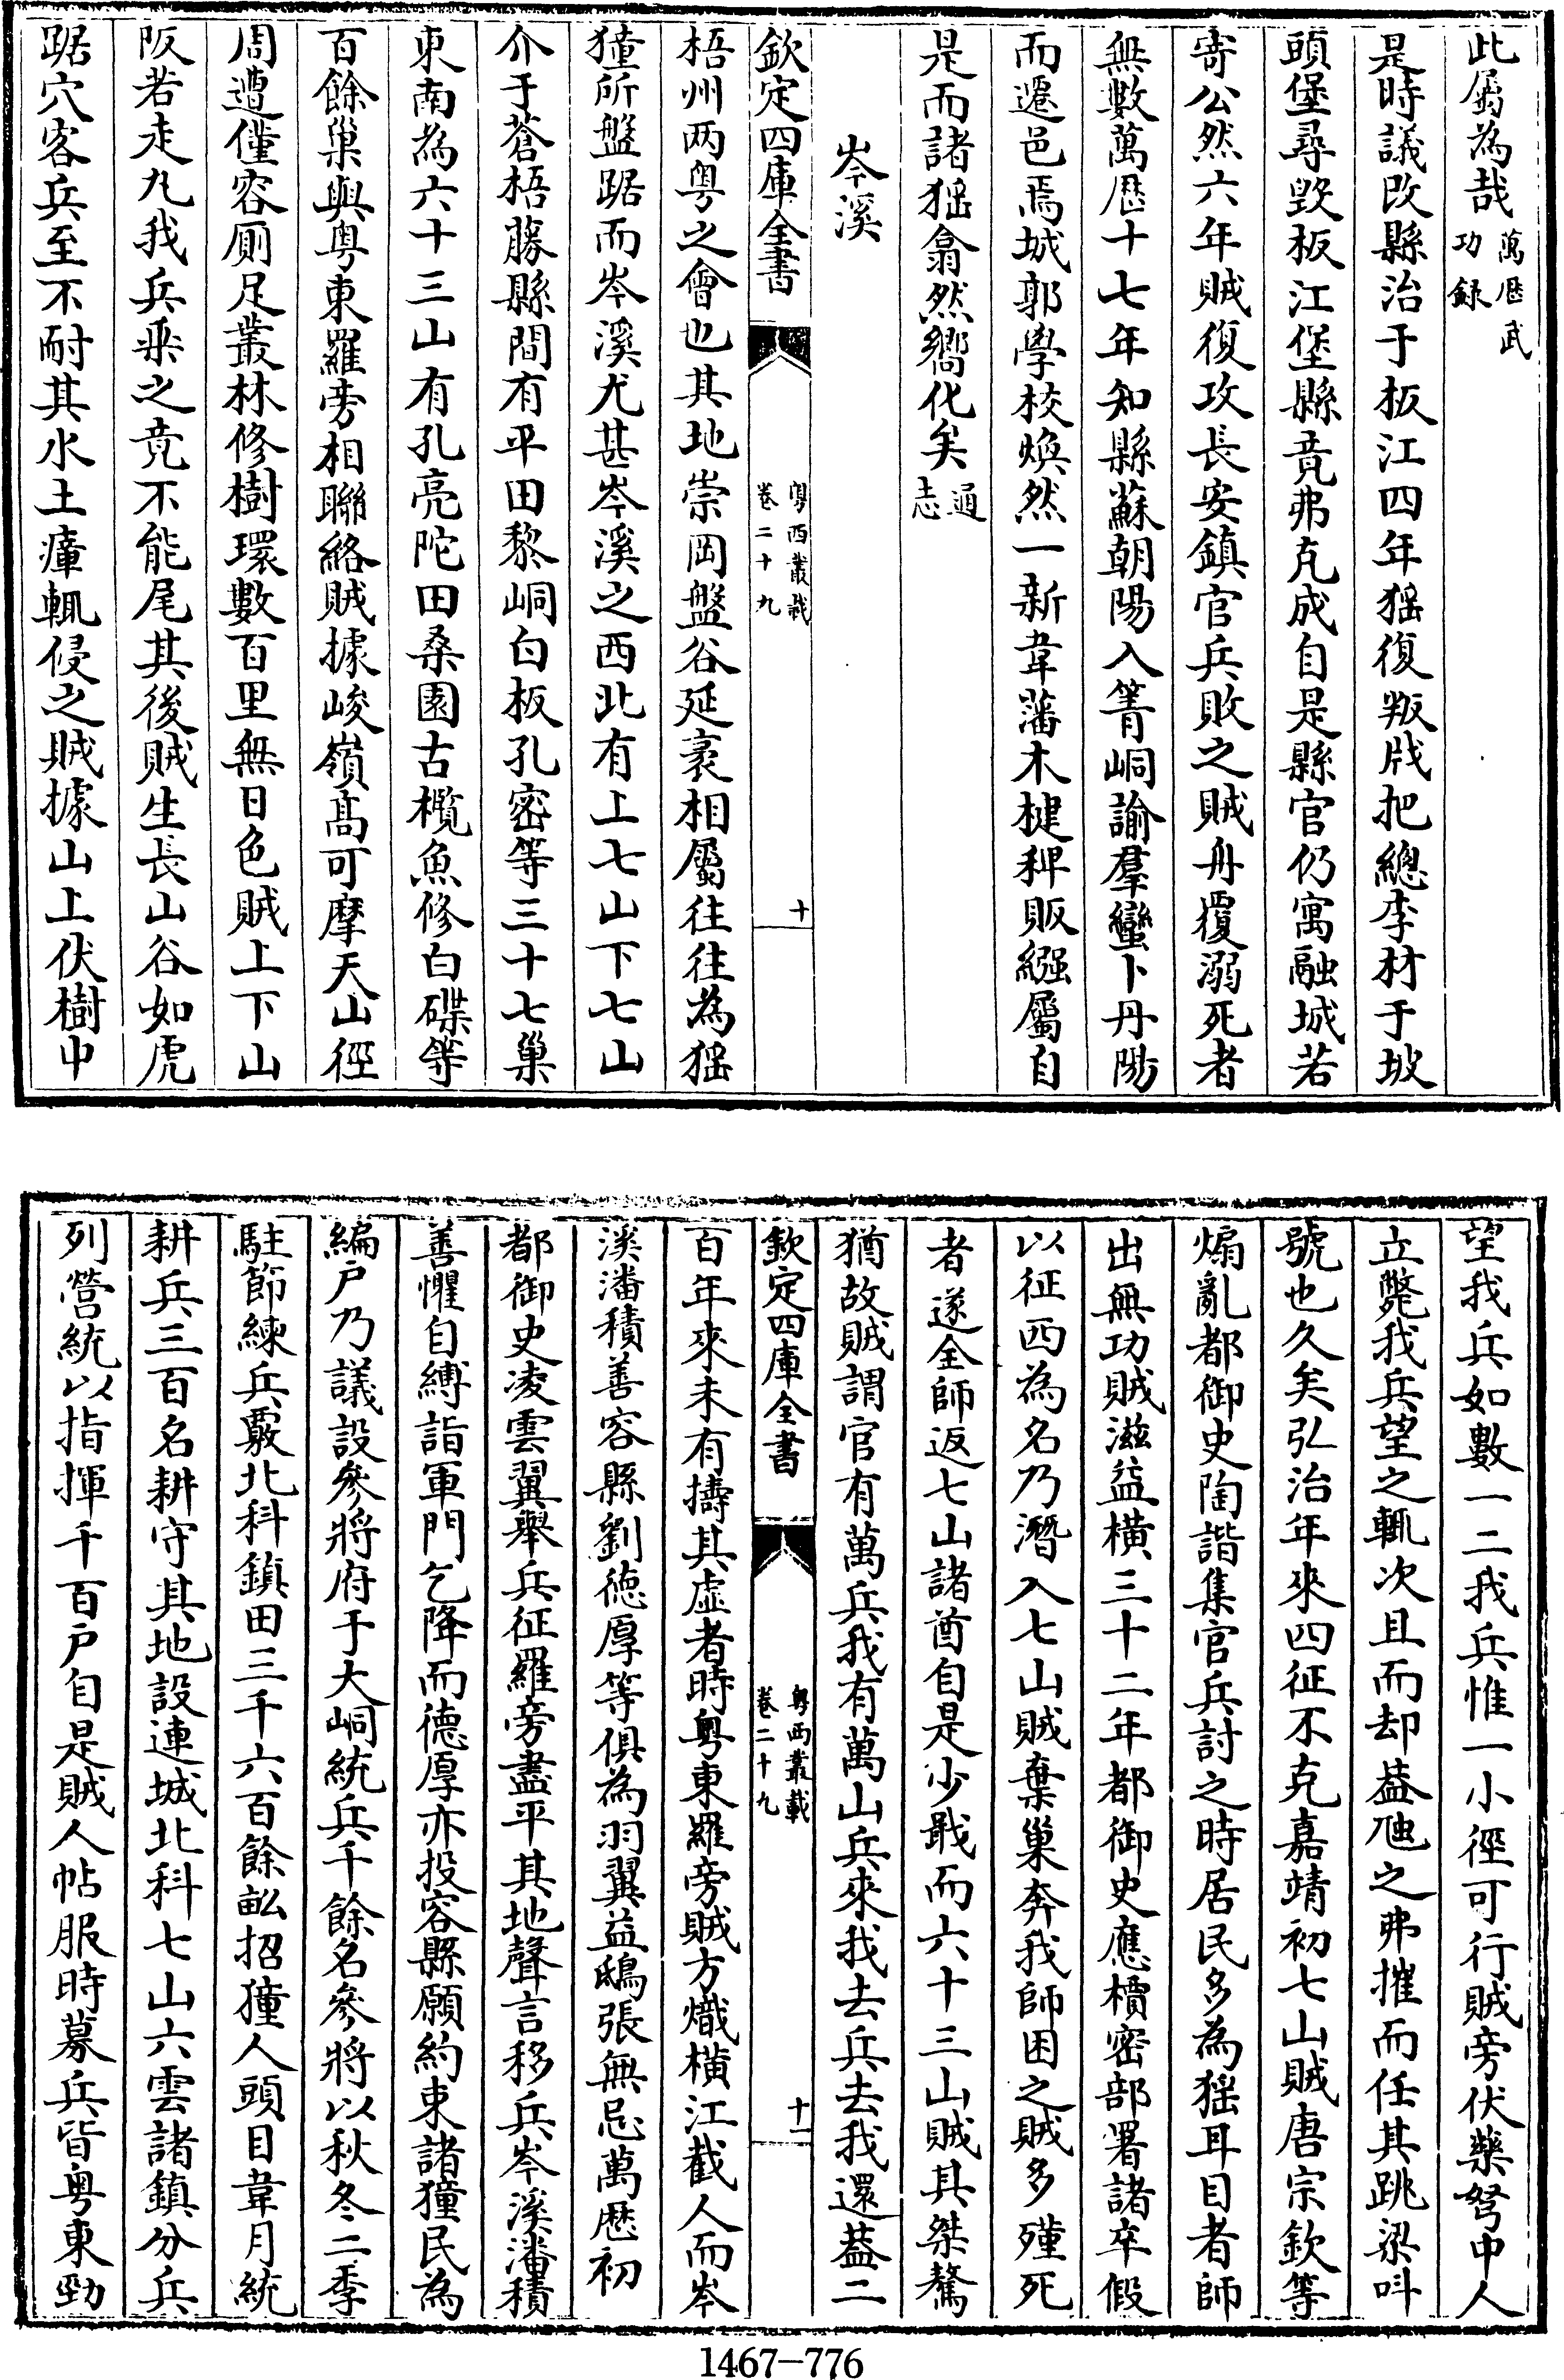 此屬為哉萬厯武功録
是時議改縣治于板江四年猺復叛戕把總李材于坡
頭堡尋毀板江堡縣竟弗克成自是縣官仍寓融城若
寄公然六年賊復攻長安鎮官兵敗之賊舟覆溺死者
無數萬厯十七年知縣蘇朝陽入箐峒諭羣蠻卜丹陽
而遷邑焉城郭學校煥然一新韋藩木楗稗販繦屬自
是而諸猺翕然嚮化矣通志
岑溪
欽定四庫全書
粤西叢載
卷二十九
十
梧州两粤之會也其地崇岡盤谷延袤相屬往往為猺
獞所盤踞而岑溪尤甚岑溪之西北有上七山下七山
介于蒼梧藤縣間有平田黎峒白板孔密等三十七巢
東南為六十三山有孔亮陀田桑園古欖魚修白碟等
百餘巢與粤東羅旁相聯絡賊據峻嶺髙可摩天山徑
周遭僅容厠足叢林修樹環數百里無日色賊上下山
阪若走丸我兵乘之竟不能尾其後賊生長山谷如虎
踞穴客兵至不耐其水土瘴輒侵之賊據山上伏樹中
望我兵如數一二我兵惟一小徑可行賊旁伏藥弩中人
立斃我兵望之輒次且而却葢虺之弗摧而任其跳梁呌
號也久矣弘治年來四征不克嘉靖初七山賊唐宗欽等
煽亂都御史陶諧集官兵討之時居民多為猺耳目者師
出無功賊滋益横三十二年都御史應檟密部署諸卒假
以征西為名乃潛入七山賊棄巢奔我師困之賊多殣死
者遂全師返七山諸酋自是少戢而六十三山賊其桀驁
猶故賊謂官有萬兵我有萬山兵來我去兵去我還葢二
欽定四庫全書
粤西叢載
卷二十九
十一
百年來未有擣其虛者時粤東羅旁賊方熾横江截人而岑
溪潘積善容縣劉德厚等俱為羽翼益鴟張無忌萬厯初
都御史凌雲翼舉兵征羅旁盡平其地聲言移兵岑溪潘積
善懼自縛詣軍門乞降而德厚亦投容縣願約束諸獞民為
編户乃議設參將府于大峒統兵千餘名參將以秋冬二季
駐節練兵覈北科鎮田三千六百餘畝招獞人頭目韋月統
耕兵三百名耕守其地設連城北科七山六雲諸鎮分兵
列營統以指揮千百户自是賊人帖服時募兵皆粤東勁
1467-776